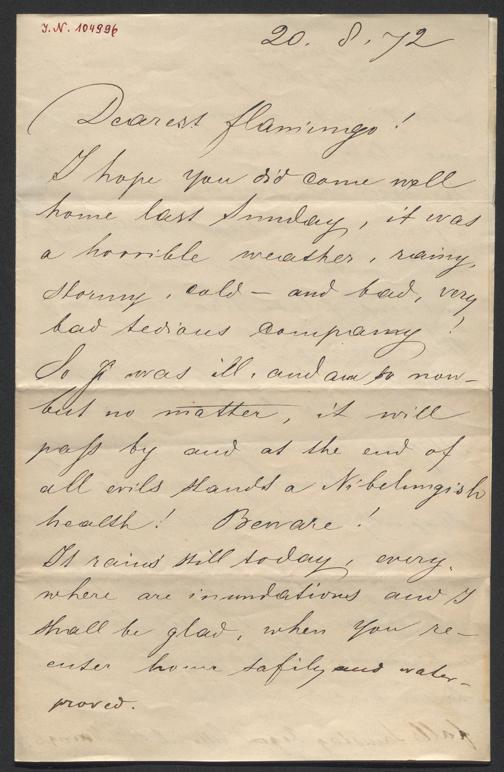 I.N. 104996
20. 8. 72
Dearest flamingo!
I hope you did come well
home last Sunday, it was
a horrible weather, rainy,
stormy, cold – and bad, very
bad tedious company!
So I was ill, and am so now –
but no matter, it will
pass by and at the end of
all evils stands a Nibelungish
health! Beware!
It rains still today, every-
where are inundations and I
shall be glad, when you re-
enter home safily and water-
proved.